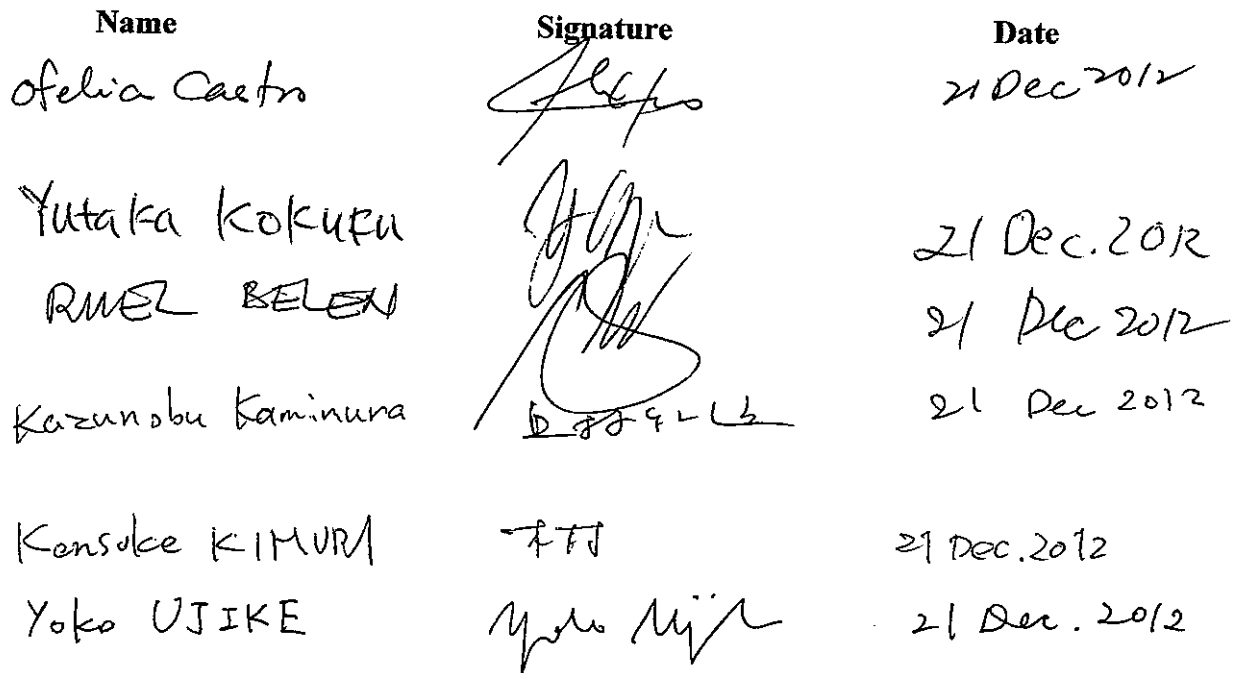 Name Signature Date
Ofelia Castro 21 Dec 2012
Yutaka KOKUFU 21 Dec. 2012
RUEL BELEN 21 Dec 2012
Kazunobu Kaminura 21 Dec 2012
Kensuke KIMURA 木村 21 Dec. 2012
Yoko UJIKE Yoko Ujike 21 Dec. 2012